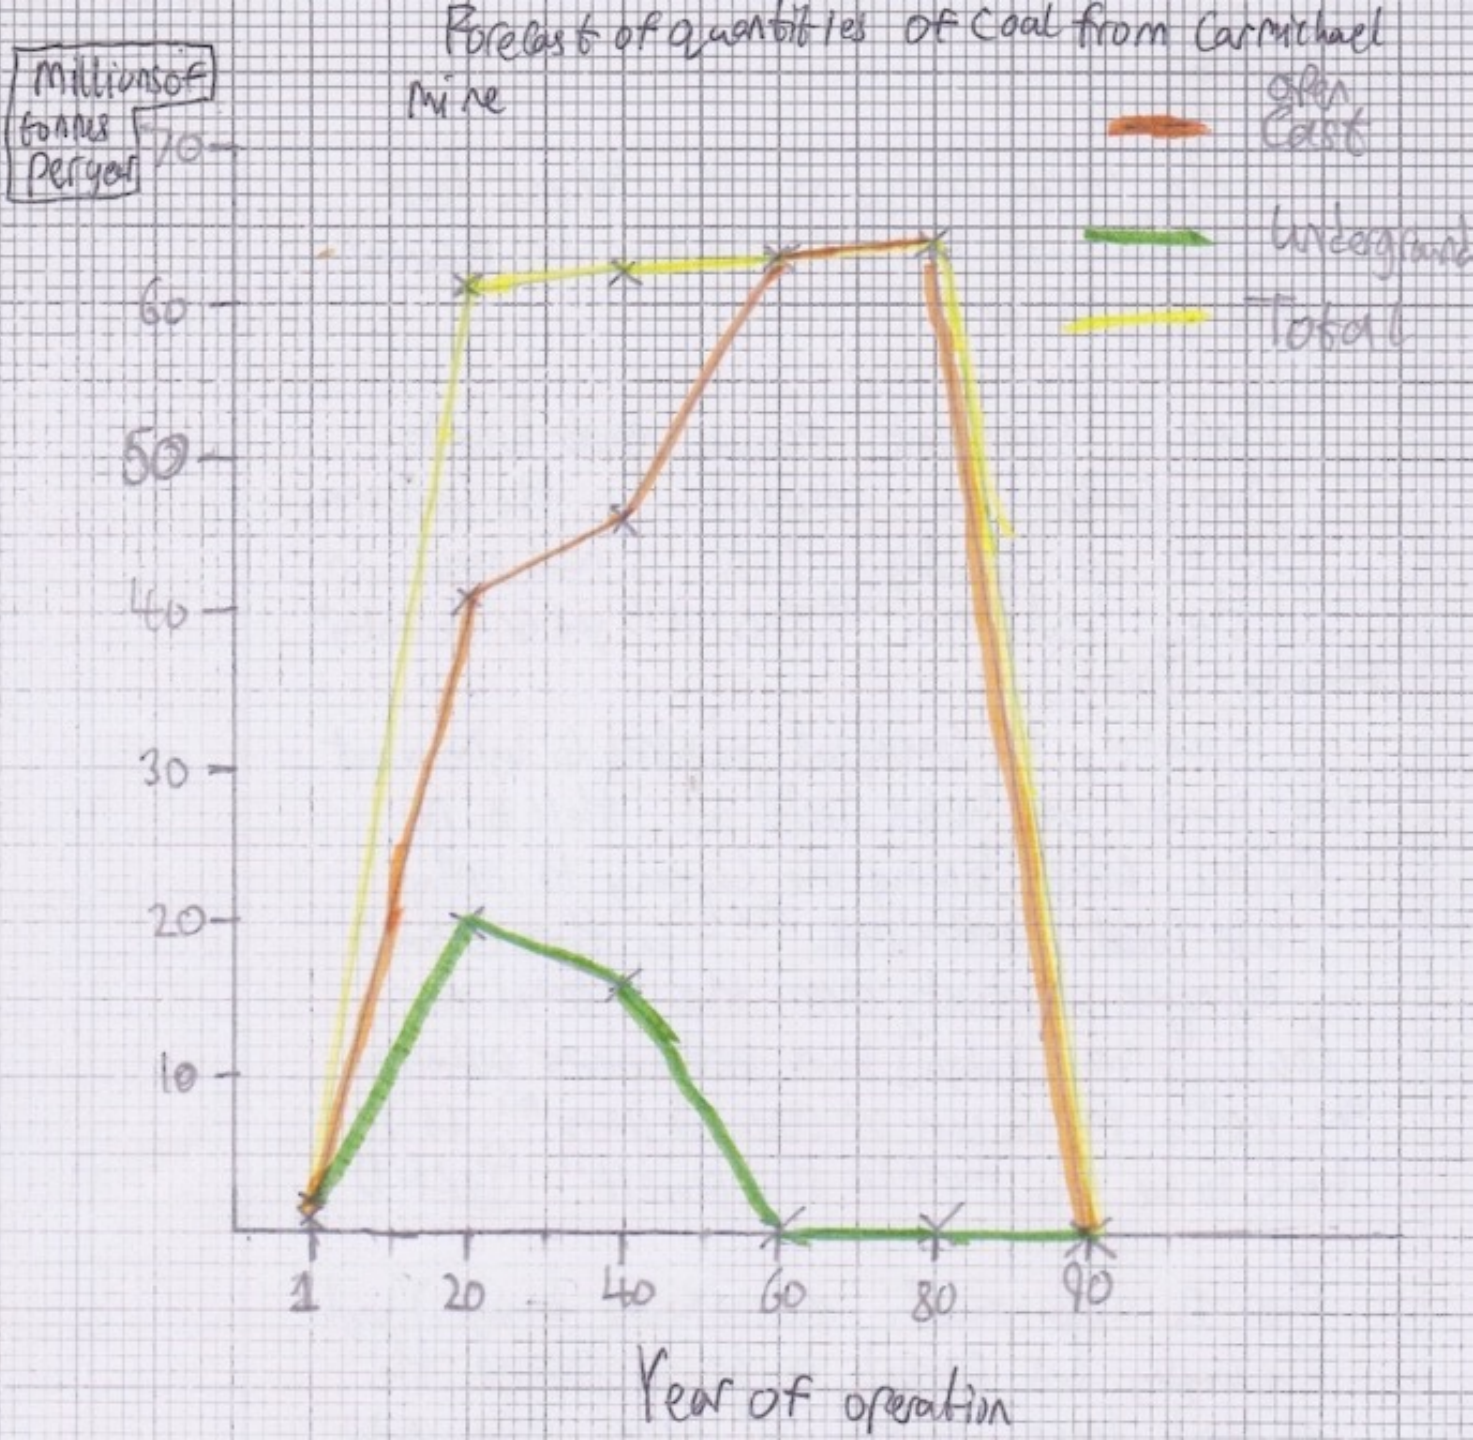 Forecast of quantities of coal from Carmichael
mine
Millions of
tonnes
per year
open
Cast
Underground
Total
70
60
50
40
30
20
10
1 20 40 60 80 90
Year of operation